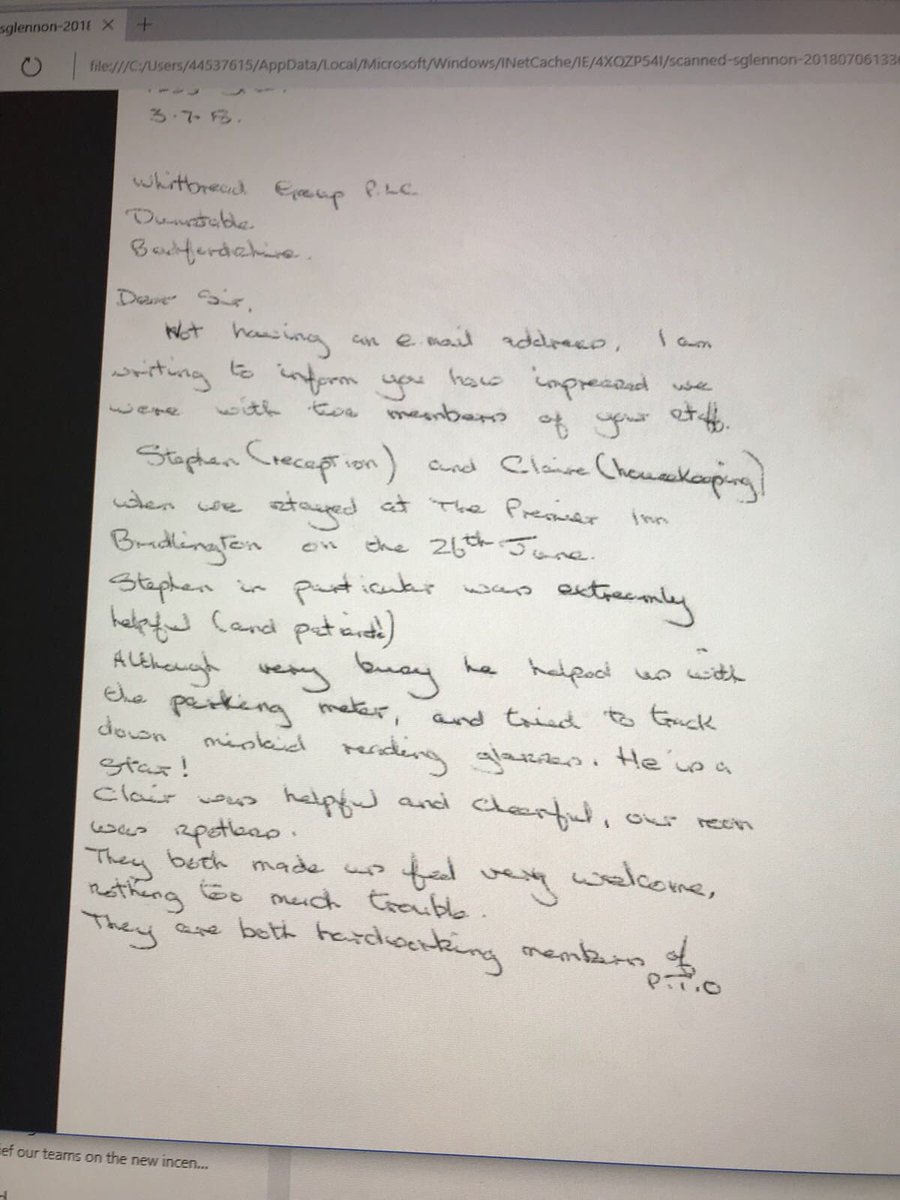 sglennon-2018 × +
file:///C:/Users/44537615/AppData/Local/Microsoft/Windows/INetCache/IE/4XQZP54I/scanned-sglennon-2018070613
3.7.18.
Whitbread Group P.L.C.
Dunstable
Bedfordshire.
Dear Sir,
Not having an e.mail address, I am
writing to inform you how impressed we
were with two members of your staff.
Stephen (reception) and Claire (housekeeping)
when we stayed at The Premier Inn
Bridlington on the 26th June.
Stephen in particular was extreamly
helpful (and patient!)
Although very busy he helped us with
the parking meter, and tried to track
down mislaid reading glasses. He is a
star!
Clair was helpful and cheerful, our room
was spotless.
They both made us feel very welcome,
nothing too much trouble.
They are both hardworking members of
P.T.O
ef our teams on the new incen...